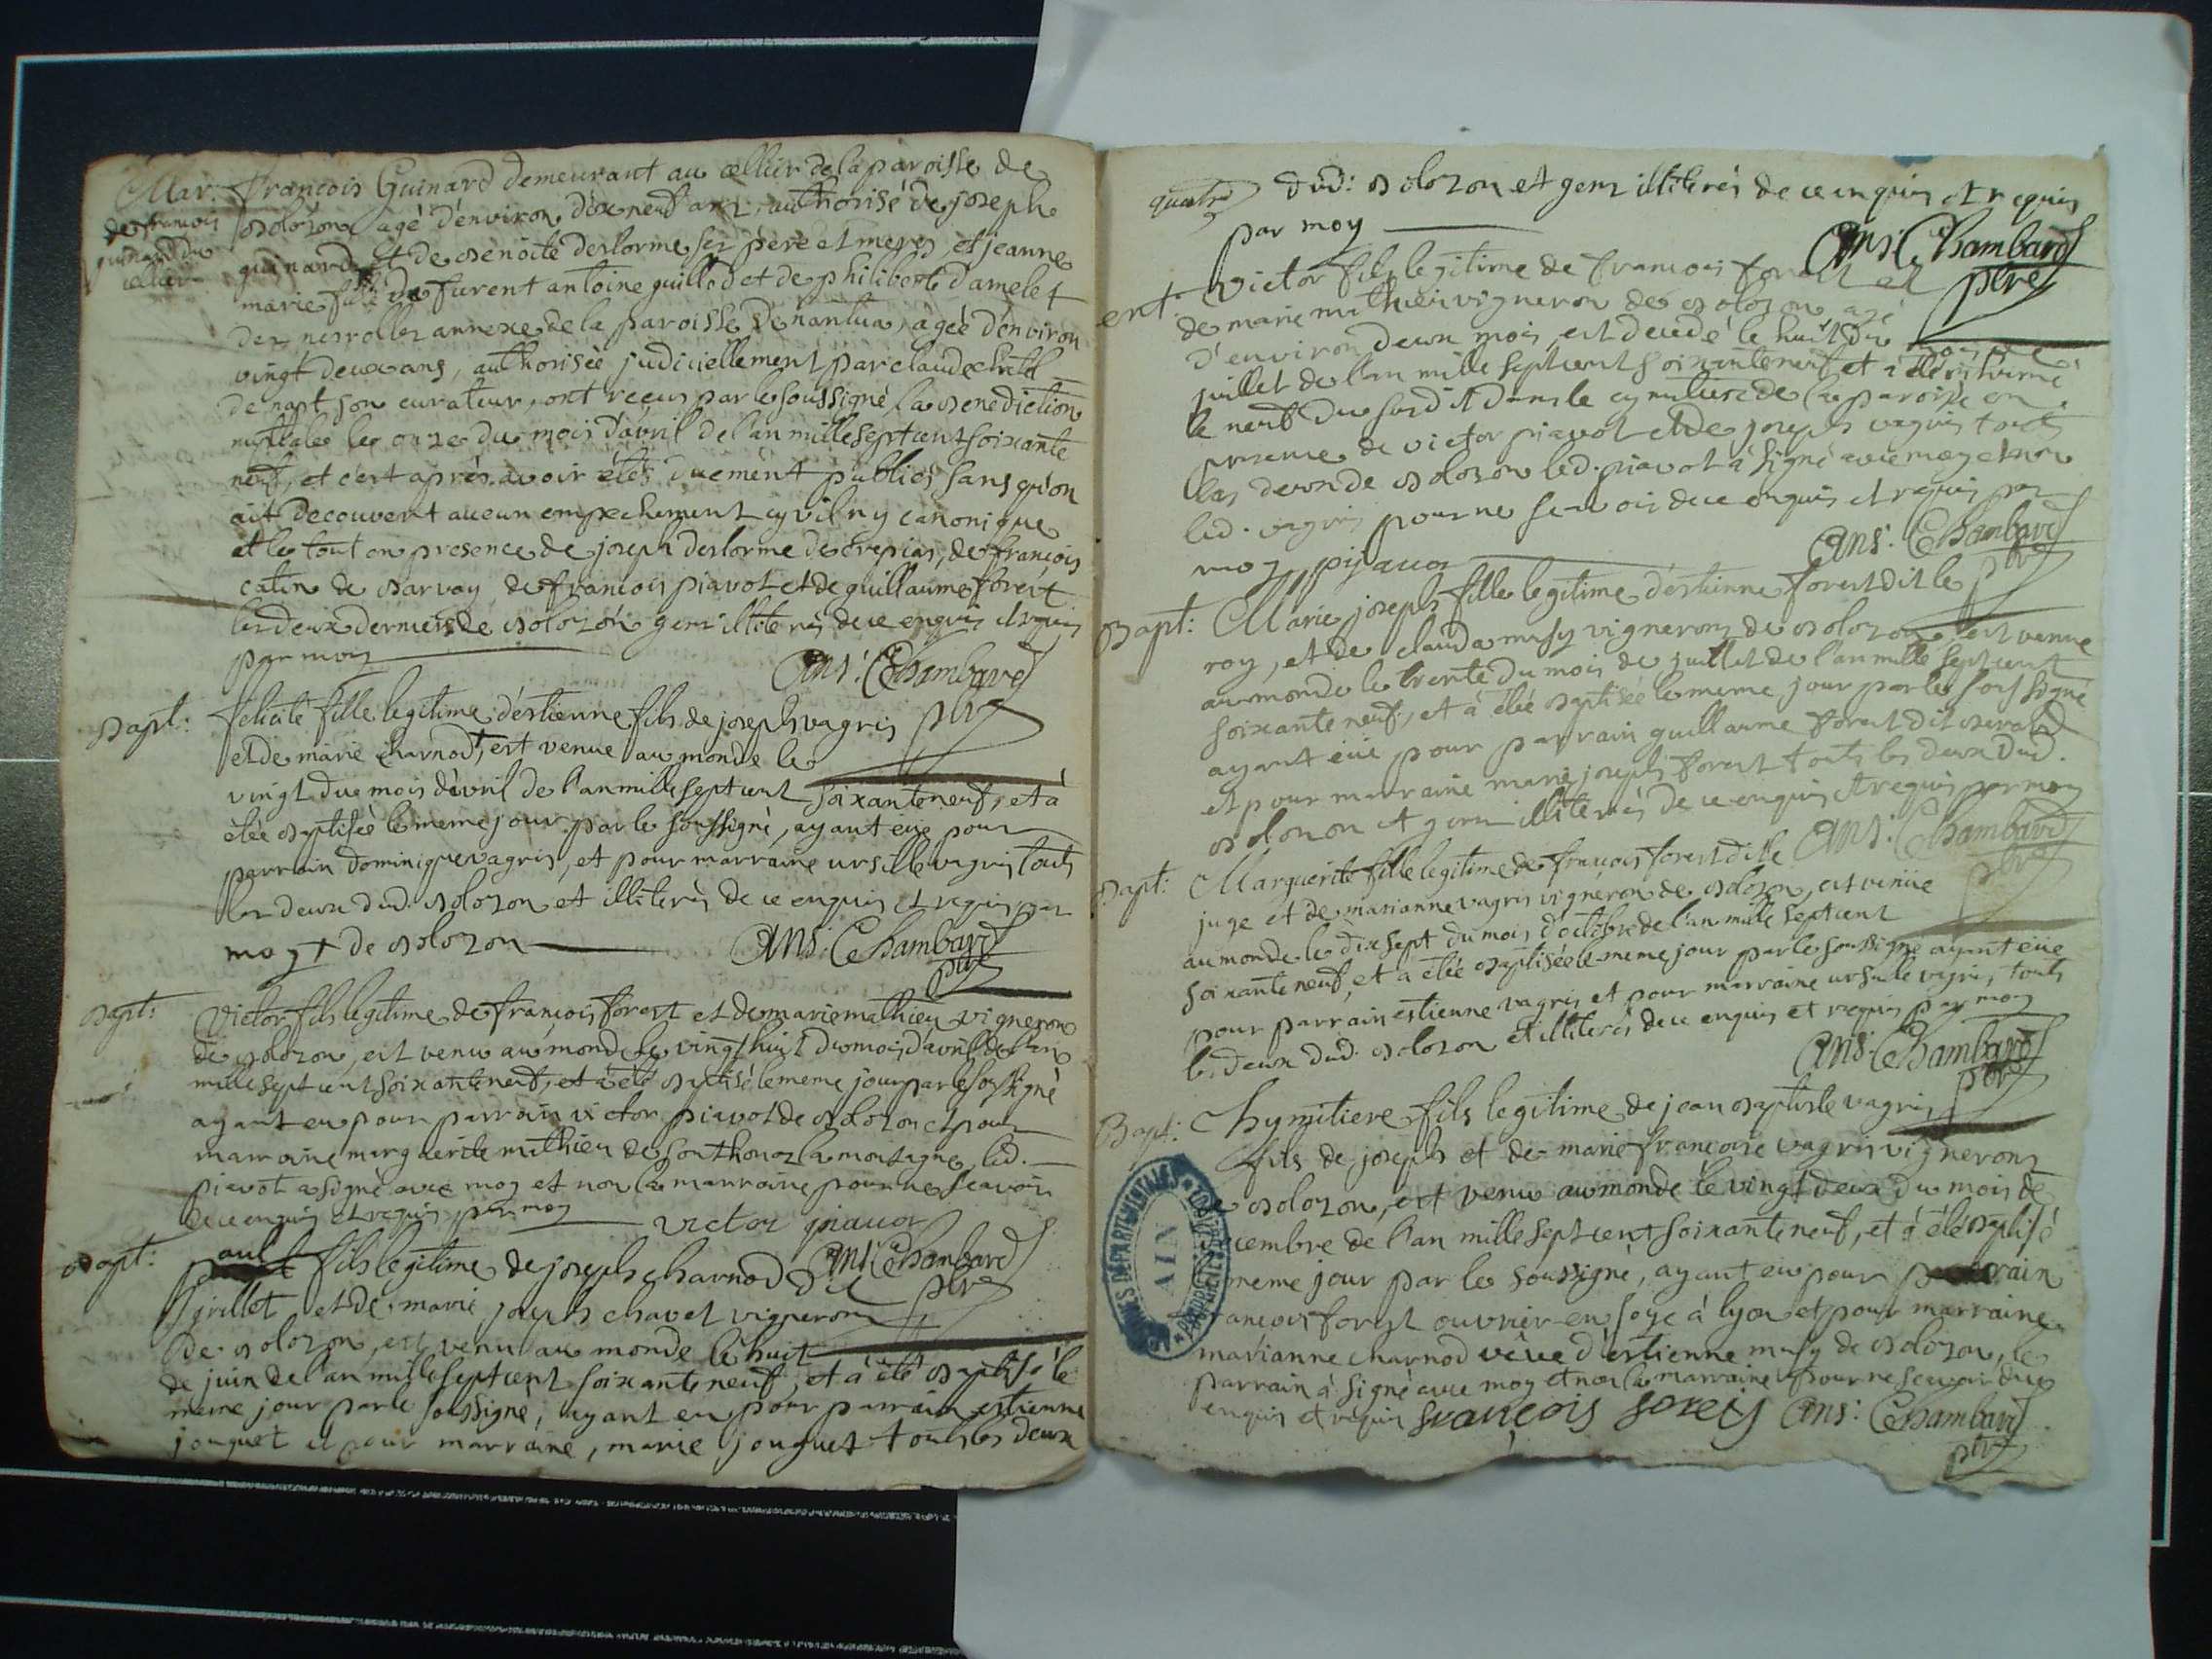 Mar: françois Guinard demeurant au cellier de la paroisse de
de françois
guinard du
cellier
bolozon agé d'environ dixneuf ans, authorisé de joseph
guinard et de benoite deslorme ses père et mere, et jeanne
marie fille de furent antoine guillod et de philiberte d'amelet
des nerrolles annexe de la paroisse de nantua, agée d'environ
vingt deux ans, authorisée judiciellement par claude
de napt son curateur, ont reçus par le soussigné la benediction
nuptiale le onze du mois d'avril de l'an mille sept cent soixante
neuf, et c'est aprés avoir étés duement publiés sans qu'on
ait decouvert aucun empechement cyvil ny canonique
et le tout en presence de joseph deslorme de crepiat, de françois
catin de de francois piavot et de guillaume forest
les deux derniers de bolozon gens illiterés de ce enquis et requis
par moy
Ans: Chambard
ptre
bapt: felicité fille legitime d'estienne fils de joseph vagris
et de marie charnod, est venue au monde le
vingt du mois d'avril de l'an mille sept cent soixante neuf, et à
étée baptisée le meme jour par le soussigné, ayant eüe pour
parrain dominique vagris, et pour marraine ursille vagris touts
les deux dud. bolozon et illiterés de ce enquis et requis par
moy + de bolozon
Ans: Chambard
ptre
bapt: Victor fils legitime de françois forest et de marie mathieu vignerons
de bolozon, est venu au monde le vingt huit du mois d'avril de l'an
mille sept cent soixante neuf, et à été baptisé le meme jour par le soussigné
ayant eu pour parrain victor piavot de bolozon et pour
marraine marguerite mathieu de sonthonoz la montagne led.
piavot a signé avec moy et non la marraine pour ne scavoir
de ce enquis et requis par moy
victor piavot
Ans: Chambard
ptre
bapt: paul fils legitime de joseph charnod dit
grillet et de marie joseph chavet vignerons
de bolozon, est venu au monde le huit
de juin de l'an mille sept cent soixante neuf, et à été baptisé le
meme jour par le soussigné, ayant eu pour parrain estienne
jouguet et pour marraine, marie jouguet touts les deux
quatre
dud: bolozon et gens illiterés de ce enquis et requis
par moy
Ans: Chambard
ptre
ent. victor fils legitime de francois forest et
de marie mathieu vignerons de bolozon, agé
d'environ deux mois, est decedé le huit du mois de
juillet de l'an mille sept cent soixante neuf et à été inhumé
le neuf du susdit dans le cymitiere de la paroisse en
presence de victor piavot et de joseph vagris touts
les deux de bolozon led. piavot à signé avec moy et non
led. vagris pour ne scavoir de ce enquis et requis par
moy piavot
Ans: Chambard
ptre
Bapt: Marie joseph fille legitime d'estienne forest dit le
roy, et de claudа musy vignerons de bolozon, est venue
au monde le trente du mois de juillet de l'an mille sept cent
soixante neuf, et à étée baptisée le meme jour par le soussigné
ayant eüe pour parrain guillaume forest dit
et pour marraine marie joseph forest touts les deux dud.
bolozon et gens illiterés de ce enquis et requis par moy
Ans: Chambard
ptre
bapt: Marguerite fille legitime de françois forest dit le
juge et de marianne vagris vignerons de bolozon, est venüe
au monde le dix sept du mois d'octobre de l'an mille sept cent
soixante neuf, et a étée baptisée le meme jour par le soussigné ayant eüe
pour parrain estienne vagris et pour marraine ursule vagris, touts
les deux dud. bolozon et illiterés de ce enquis et requis par moy
Ans: Chambard
ptre
Bapt: Thymitiere fils legitime de jean baptiste vagris
fils de joseph et de marie françoise vagris vignerons
de bolozon, est venu au monde le vingt deux du mois de
cembre de l'an mille sept cent soixante neuf, et à été baptisé
meme jour par le soussigné, ayant eu pour parrain
rançois forest ouvrier en soye à lyon et pour marraine
marianne charnod veuve d'estienne musy de bolozon, le
parrain à signé avec moy et non la marraine pour ne scavoir de ce
enquis et requis françois foreis Ans: Chambard
ptre
ARCHIVES DEPARTEMENTALES
AIN